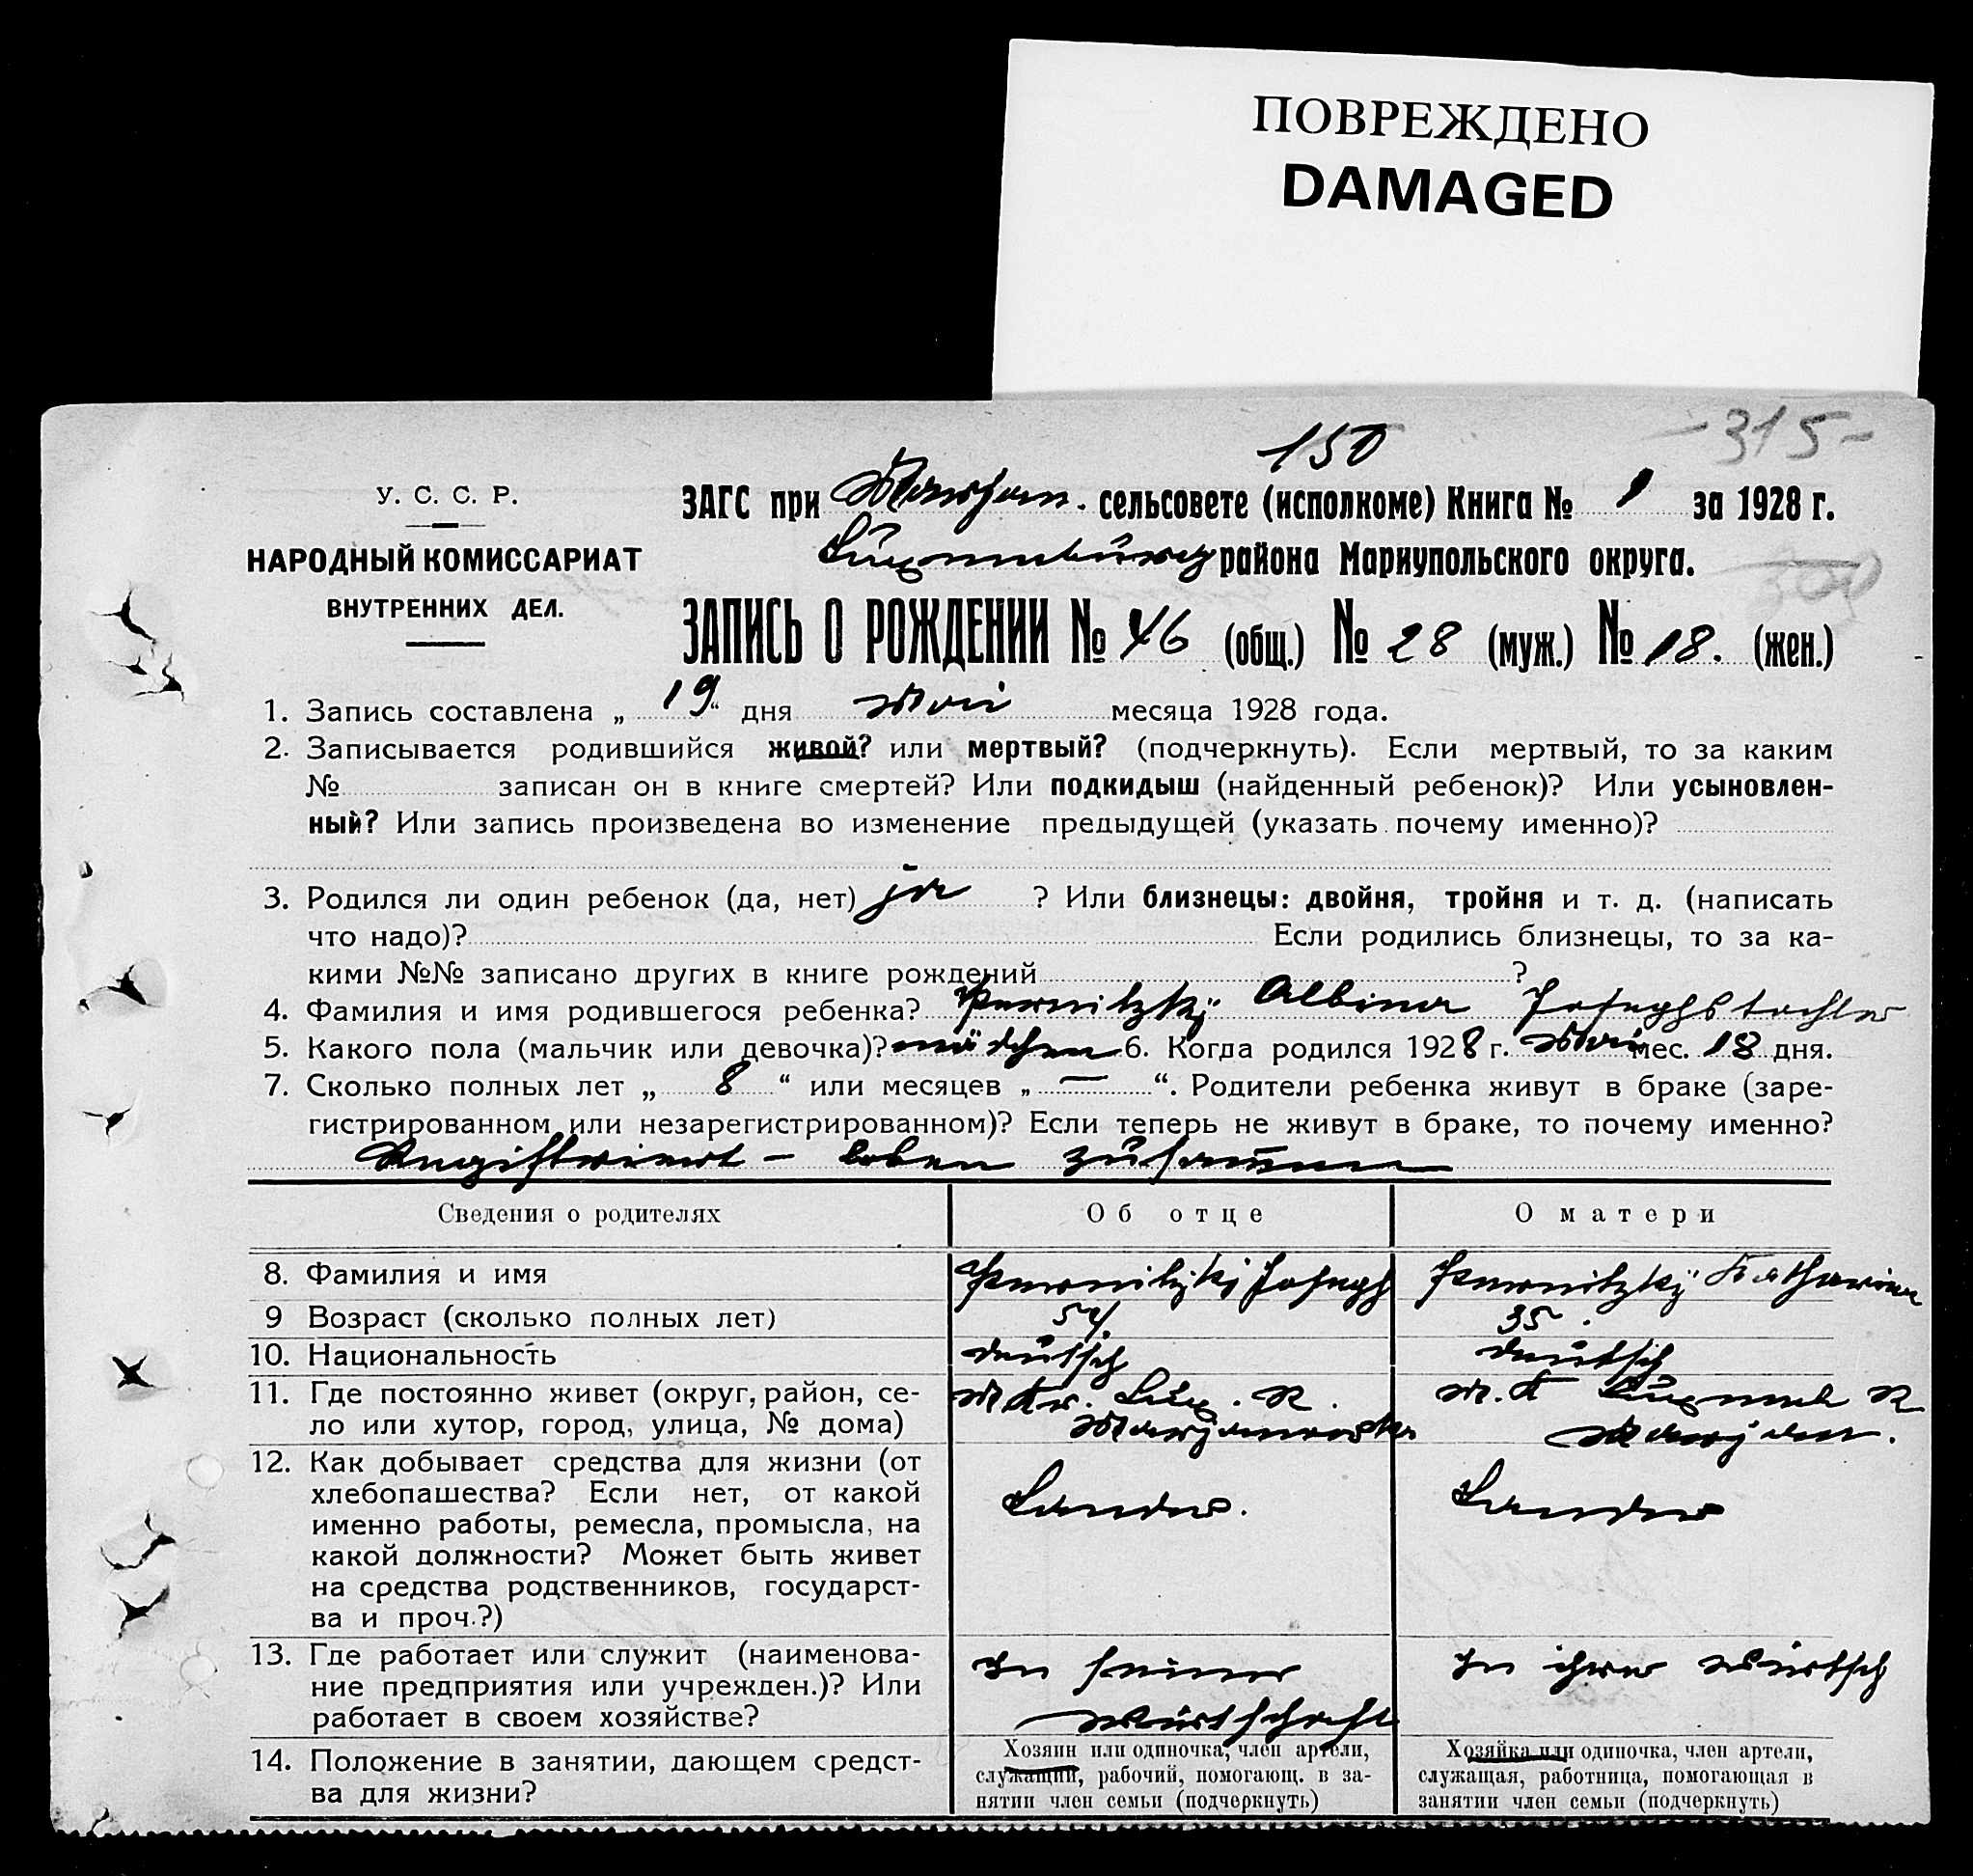 ПОВРЕЖДЕНО
DAMAGED
-315-
150
У. С. С. Р.
НАРОДНЫЙ КОМИССАРИАТ
ВНУТРЕННИХ ДЕЛ.
ЗАГС при Marjan. сельсовете (исполкоме) Книга № 1 за 1928 г.
Luxemburg района Мариупольского округа.
300
ЗАПИСЬ О РОЖДЕНИИ № 46 (общ.) № 28 (муж.) № 18. (жен.)
1. Запись составлена „ 19 “ дня Mai месяца 1928 года.
2. Записывается родившийся живой? или мертвый? (подчеркнуть). Если мертвый, то за каким
№ записан он в книге смертей? Или подкидыш (найденный ребенок)? Или усыновлен-
ный? Или запись произведена во изменение предыдущей (указать почему именно)?
3. Родился ли один ребенок (да, нет) ja ? Или близнецы: двойня, тройня и т. д. (написать
что надо)? Если родились близнецы, то за ка-
кими №№ записано других в книге рождений ?
4. Фамилия и имя родившегося ребенка? Albina Josephstochter
5. Какого пола (мальчик или девочка)? mädchen 6. Когда родился 1928 г. Mai мес. 18 дня.
7. Сколько полных лет „ 8 “ или месяцев „ — “. Родители ребенка живут в браке (заре-
гистрированном или незарегистрированном)? Если теперь не живут в браке, то почему именно?
Registriert – leben zusammen
Сведения о родителях Об отце О матери
8. Фамилия и имя Joseph Katharina
9 Возраст (сколько полных лет) 54. 35.
10. Национальность deutsch deutsch
11. Где постоянно живет (округ, район, се- M Kr. Lux. R. M. K Luxemb R
ло или хутор, город, улица, № дома) Marjanowka Marjan.
12. Как добывает средства для жизни (от
хлебопашества? Если нет, от какой Landw. Landw
именно работы, ремесла, промысла, на
какой должности? Может быть живет
на средства родственников, государст-
ва и проч.?)
13. Где работает или служит (наименова- In seiner In ihrer Wirtsch
ние предприятия или учрежден.)? Или
работает в своем хозяйстве? Wirtschaft
14. Положение в занятии, дающем средст-
ва для жизни?
Хозяин или одиночка, член артели,
служащий, рабочий, помогающ. в за-
нятии член семьи (подчеркнуть)
Хозяйка или одиночка, член артели,
служащая, работница, помогающая в
занятии член семьи (подчеркнуть)